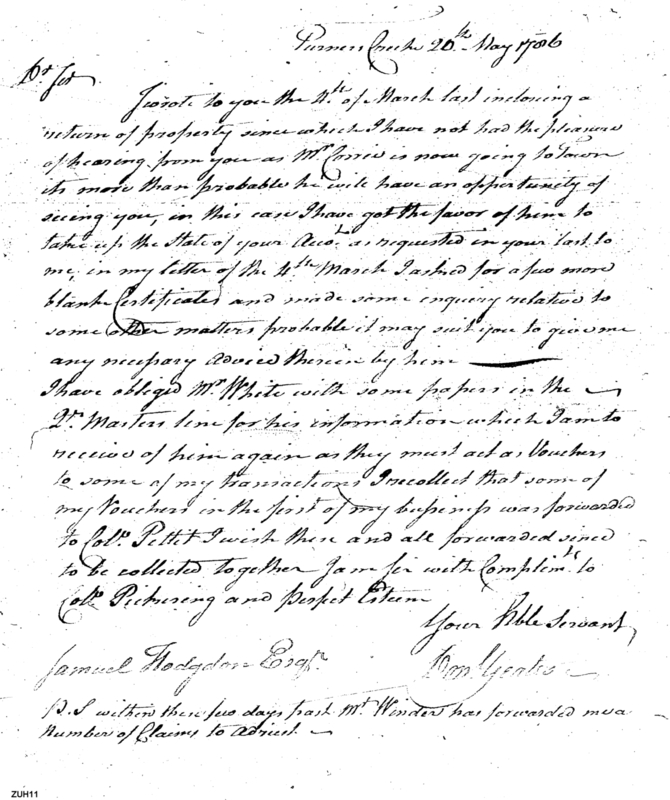 Turners Creek 20th May 1786
Dr Sir
I wrote to you the 4th of March last inclosing a
return of property since which I have not had the pleasure
of hearing from you as Mr Corrie is now going to town
its more than probable he will have an opportunity of
seeing you, in this case I have got the favor of him to
take up the State of your Acct as requested in your last to
me, in my letter of the 4th March I asked for a few more
blank Certificates and made some enquiry relative to
some other matters probable it may suit you to give me
any necessary Advice therein by him
I have obleged Mr White with some papers in the
Qr Masters line for his information which I am to
receive of him again as they must act as Vouchers
to some of my transactions I recollect that some of
my Vouchers in the first of my bussiness was forwarded
to Colo Pettit I wish these and all forwarded since
to be collected together I am Sir with Complimts to
Colo Pickering and perfect Esteem
Your Hble Servant
Samuel Hodgdon Esqr
Donl Yeates
P.S within these few days past Mr Winder has forwarded me a
Number of Claims to Adjust
ZUH11